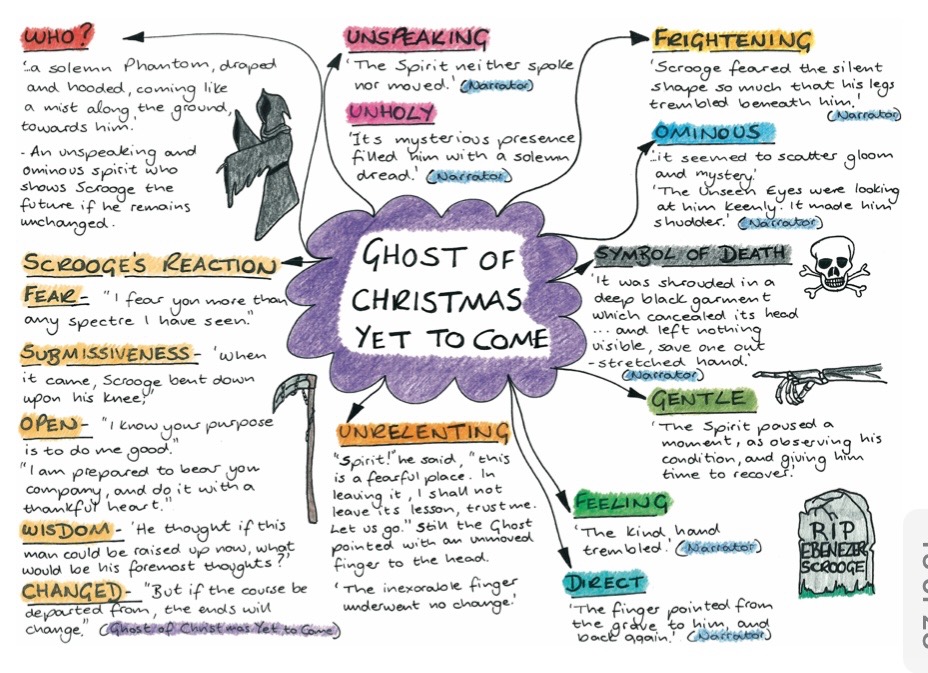 WHO?
'..a solemn Phantom, draped
and hooded, coming like
a mist along the ground,
towards him.'
- An unspeaking and
ominous spirit who
shows Scrooge the
future if he remains
unchanged.
UNSPEAKING
'The Spirit neither spoke
nor moved.' (Narrator)
UNHOLY
'Its mysterious presence
filled him with a solemn
dread.' (Narrator)
FRIGHTENING
'Scrooge feared the silent
shape so much that his legs
trembled beneath him,'
(Narrator)
OMINOUS
'..it seemed to scatter gloom
and mystery.'
'The Unseen Eyes were looking
at him keenly. It made him
shudder.' (Narrator)
GHOST OF
CHRISTMAS
YET TO COME
SYMBOL OF DEATH
'It was shrouded in a
deep black garment
which concealed its head
... and left nothing
visible, save one out
-stretched hand.'
(Narrator)
SCROOGE'S REACTION
FEAR- "I fear you more than
any spectre I have seen."
SUBMISSIVENESS- 'When
it came, Scrooge bent down
upon his knee;'
OPEN- "I know your purpose
is to do me good."
"I am prepared to bear you
company, and do it with a
thankful heart."
WISDOM- 'He thought if this
man could be raised up now, what
would be his foremost thoughts?'
CHANGED- "But if the course be
departed from, the ends will
change." (Ghost of Christmas Yet to Come)
UNRELENTING
"Spirit!" he said, "this
is a fearful place. In
leaving it, I shall not
leave its lesson, trust me.
Let us go." Still the Ghost
pointed with an unmoved
finger to the head.
'The inexorable finger
underwent no change.'
GENTLE
'The Spirit paused a
moment, as observing his
condition, and giving him
time to recover.'
FEELING
'The kind hand
trembled.' (Narrator)
DIRECT
'The finger pointed from
the grave to him, and
back again.' (Narrator)
RIP
EBENEZER
SCROOGE